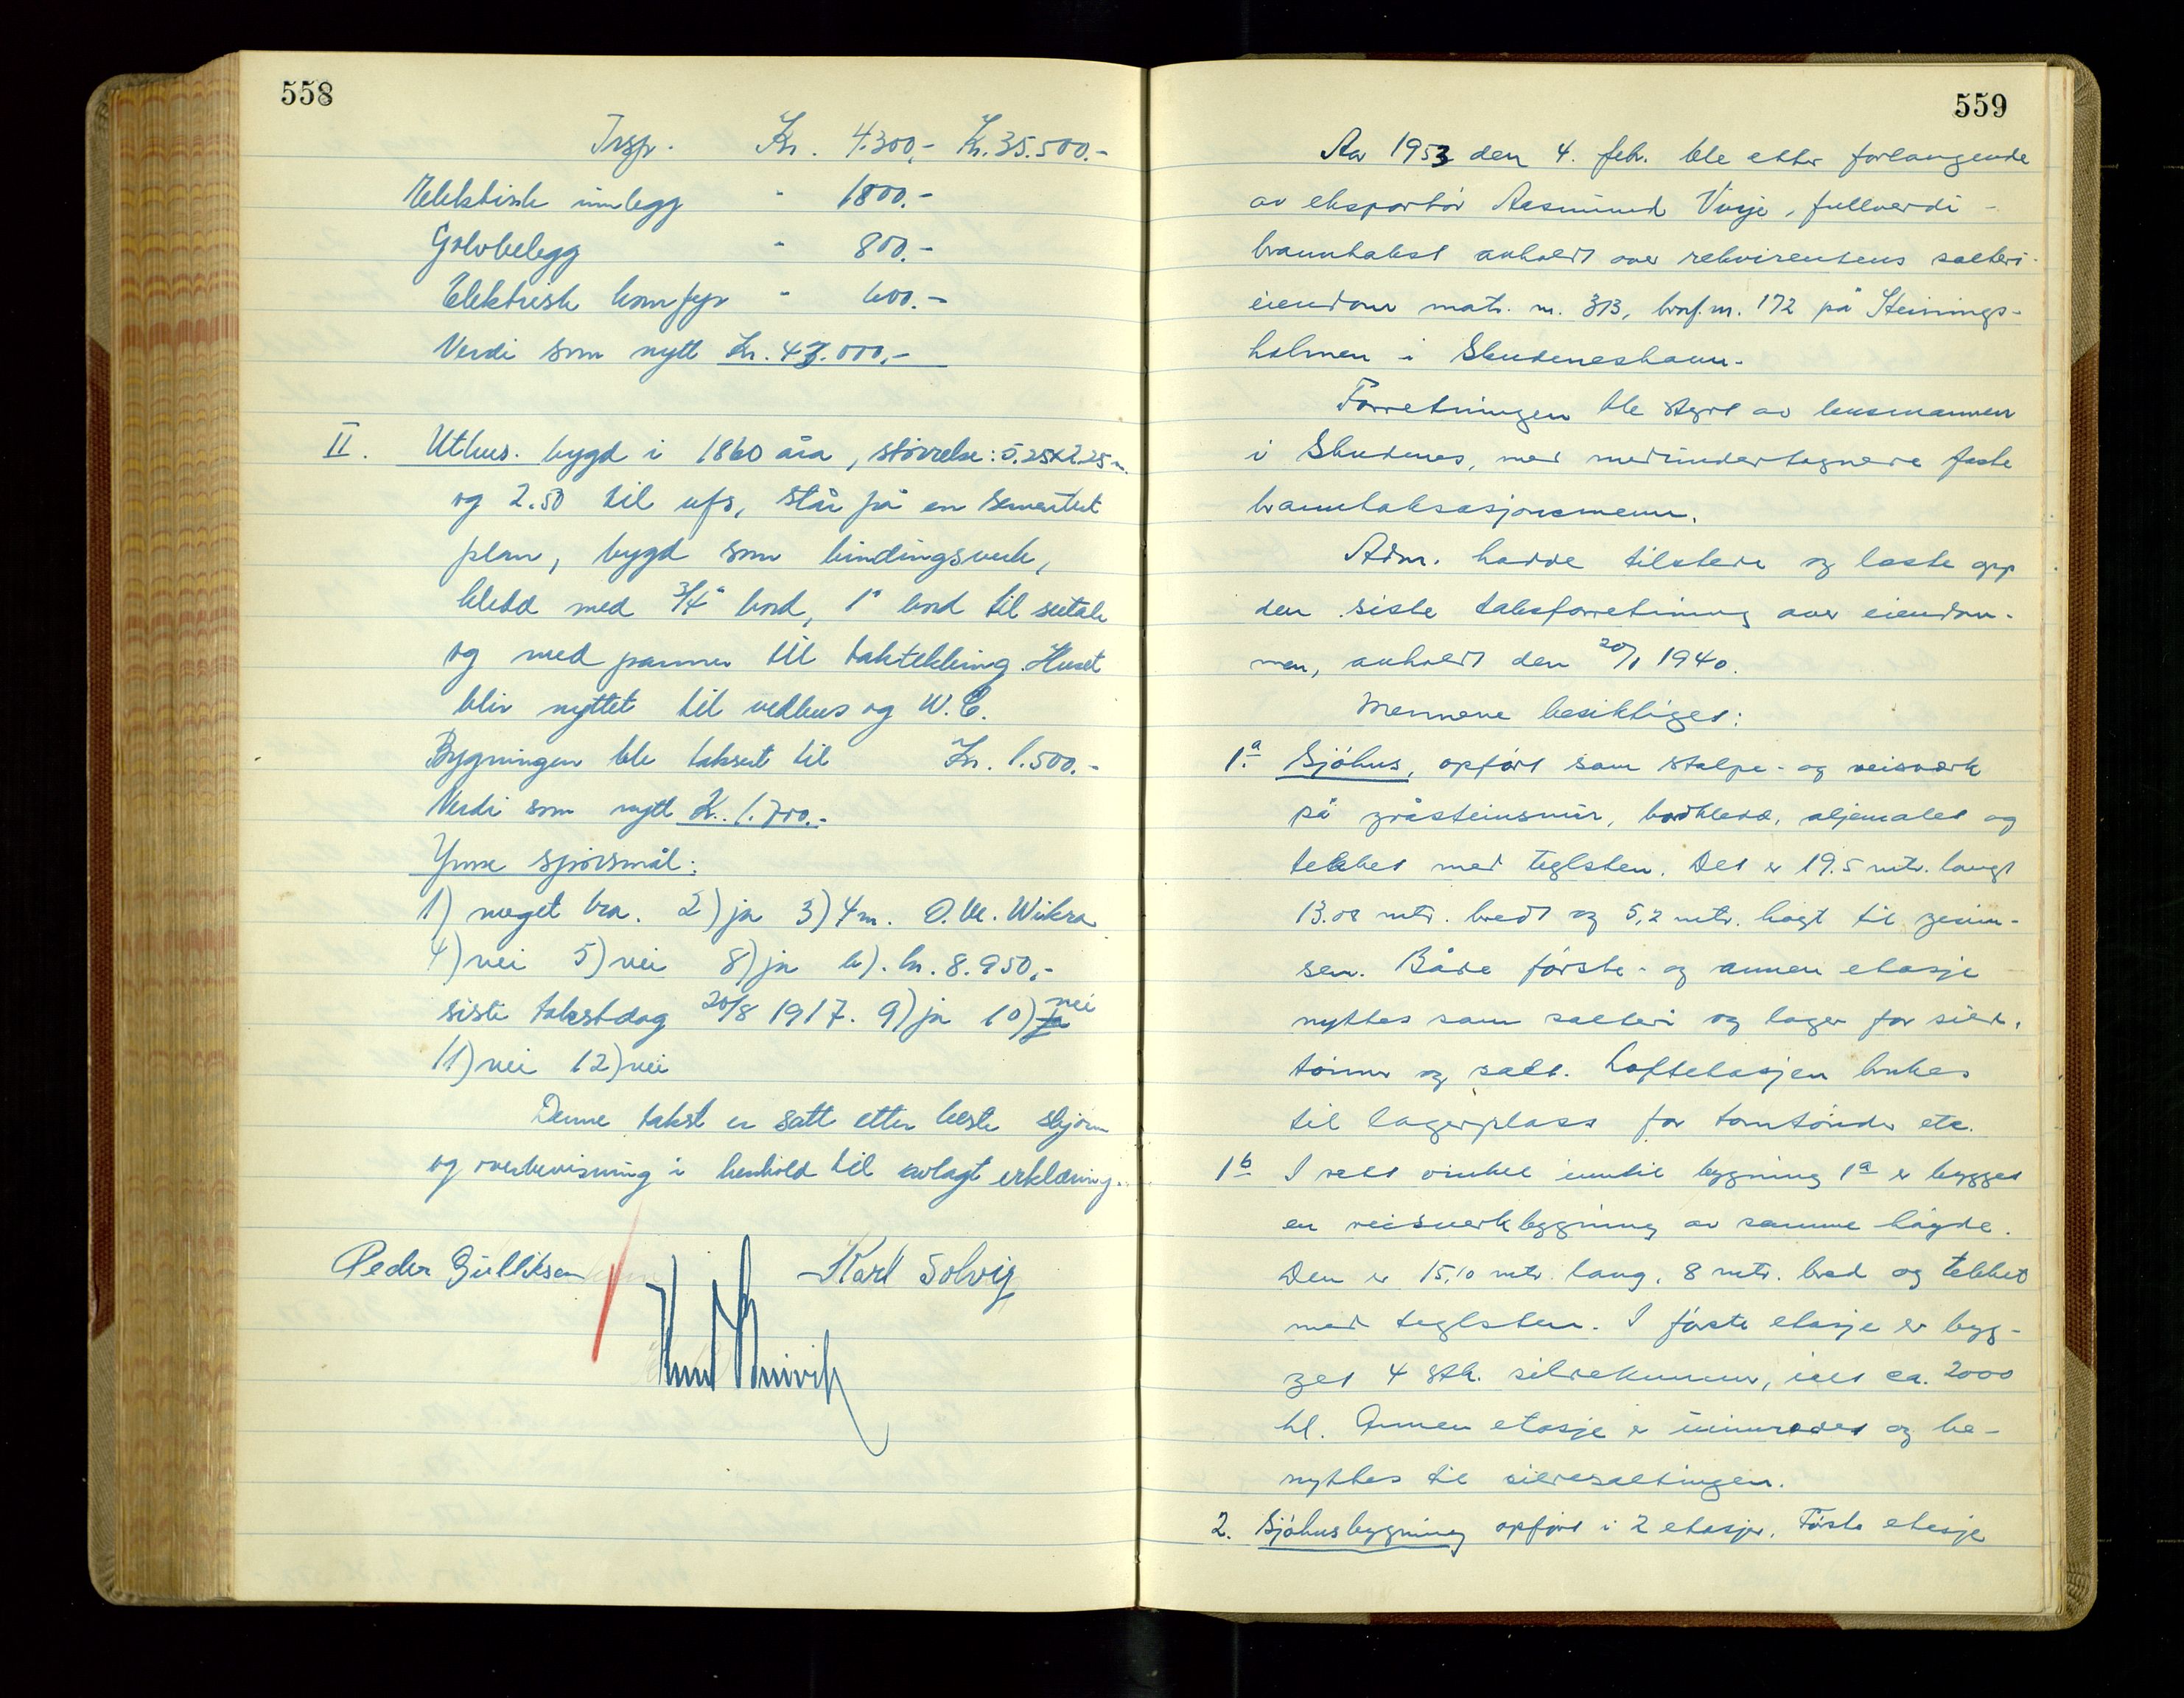 558
Trsp. Kr. 4.300,- Kr. 35.500.-
Elektrisk innlegg " 1800.-
Golvbelegg " 800.-
Elektrisk komfyr " 600.-
Verdi som nytt Kr. 43.000,-
II. Uthus. bygd i 1860 åra, størrelse: 5.25x2.25 m.
og 2.50 til ufs, står på en sementert
plan, bygd som bindingsverk,
kledd med 3/4" bord, 1" bord til sutak
og med panner til taktekking. Huset
blir nyttet til vedhus og W.C.
Bygningen ble taksert til Kr. 1.500.-
Verdi som nytt K. 1.700.-
Ymse spørsmål:
1) meget bra. 2) ja 3) 4 m. O.M. Wikra
4) nei 5) nei 8) ja b). kr. 8.950,-
siste takstdag 20/8 1917. 9) ja 10) ja nei
11) nei 12) nei
Denne takst er satt etter beste skjønn
og overbevisning i henhold til avlagt erklæring.
Peder Gulliksen Karl Solvig
559
Aar 1953 den 4. febr. ble etter forlangende
av eksportør Aasmund Vaage, fullverdi-
branntakst avholdt over rekvirentens salteri-
eiendom matr. nr. 313, brnf. nr. 172 på Steinings-
holmen i Skudeneshavn.
Forretningen ble styrt av lensmannen
i Skudenes, med medundertegnede faste
branntaksasjonsmenn.
Adm. hadde tilstede og leste opp
den siste takstforretning over eiendom-
men, avholdt den 20/1 1940.
Mennene besiktiget:
1.a Sjøhus, opført som stolpe- og reisverk
på gråsteinsmur, bordkledd, oljemalet og
tekket med teglsten. Det er 19.5 mtr. langt
13.08 mtr. bredt og 5,2 mtr. høgt til gesim-
sen. Både første- og annen etasje
nyttes som salteri og lager for sild,
tønner og salt. Loftetasjen brukes
til lagerplass for tomtønder etc.
1b I rett vinkel inntil bygning 1a er bygget
en reisverkbygning av samme høyde.
Den er 15,10 mtr. lang, 8 mtr. bred og tekket
med teglsten. I første etasje er byg-
get 4 stk. sildekummer, ialt ca. 2000
hl. Annen etasje er uinnredet og be-
nyttes til sildesaltingen.
2. Sjøhusbygning opført i 2 etasjer. Første etasje